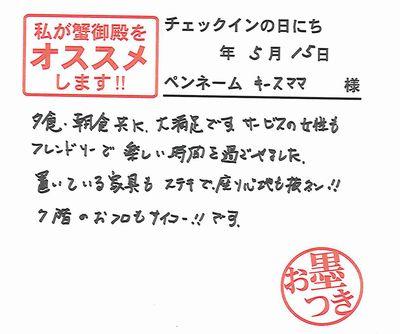 私が蟹御殿を
オススメ
します!!
チェックインの日にち
年 5月 15日
ペンネーム キースママ 様
夕食・朝食共に、大満足です サービスの女性も
フレンドリーで 楽しい時間を過ごせました。
置いている家具も ステキで、座り心地も抜群!!
7階のおフロもサイコー!!です。
お墨つき